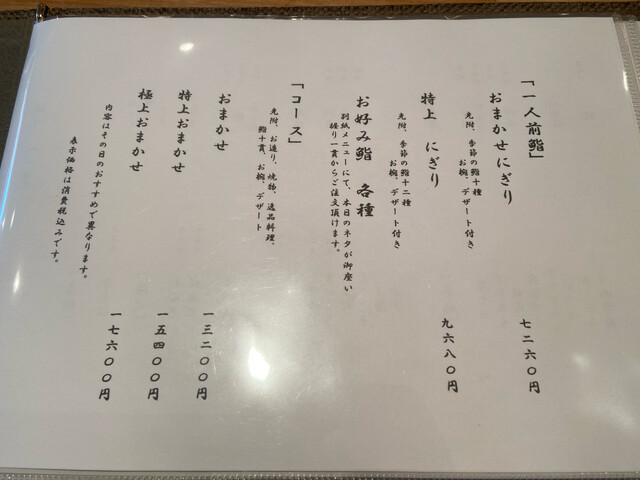 「一人前鮨」
おまかせにぎり 七二六〇円
先附、季節の鮨十種
お椀、デザート付き
特上 にぎり 九六八〇円
先附、季節の鮨十二種
お椀、デザート付き
お好み鮨 各種
別紙メニューにて、本日のネタが御座い
握り一貫からご注文頂けます。
「コース」
先附、お造り、焼物、逸品料理、
鮨十貫、お椀、デザート
おまかせ 一三二〇〇円
特上おまかせ 一五四〇〇円
極上おまかせ 一七六〇〇円
内容はその日のおすすめで異なります。
表示価格は消費税込みです。